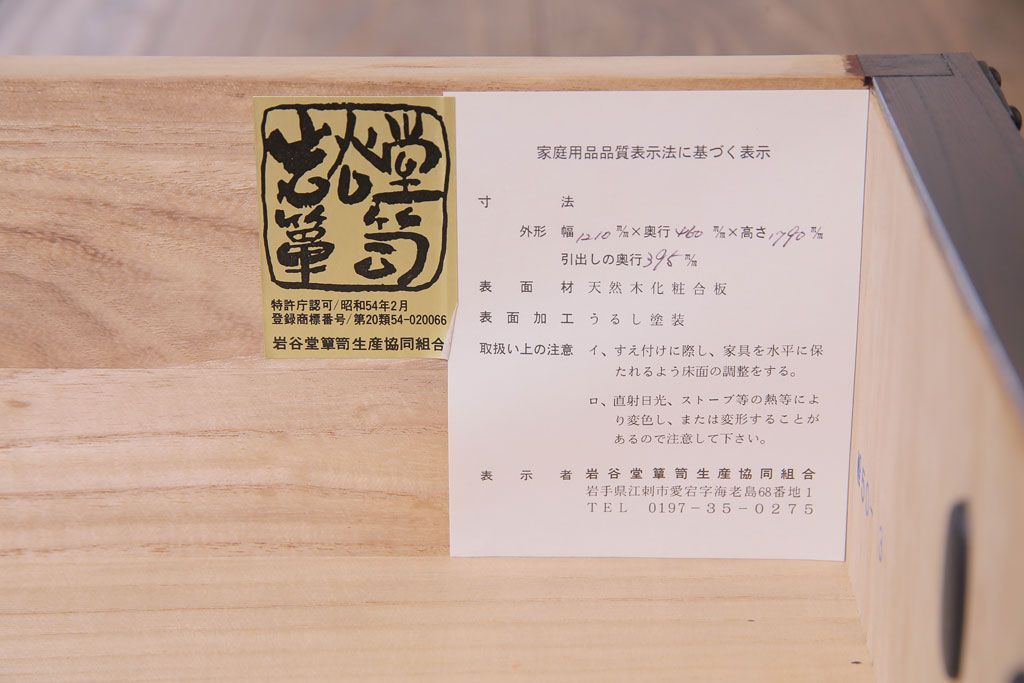 岩谷堂
簞笥
特許庁認可/昭和54年2月
登録商標番号/第20類54-020066
岩谷堂簞笥生産協同組合
家庭用品品質表示法に基づく表示
寸法
外形 幅1210m/m×奥行460m/m×高さ1790m/m
引出しの奥行395m/m
表面材 天然木化粧合板
表面加工 うるし塗装
取扱い上の注意 イ、すえ付けに際し、家具を水平に保
たれるよう床面の調整をする。
ロ、直射日光、ストーブ等の熱等によ
り変色し、または変形することが
あるので注意して下さい。
表示者 岩谷堂簞笥生産協同組合
岩手県江刺市愛宕字海老島68番地1
TEL 0197-35-0275